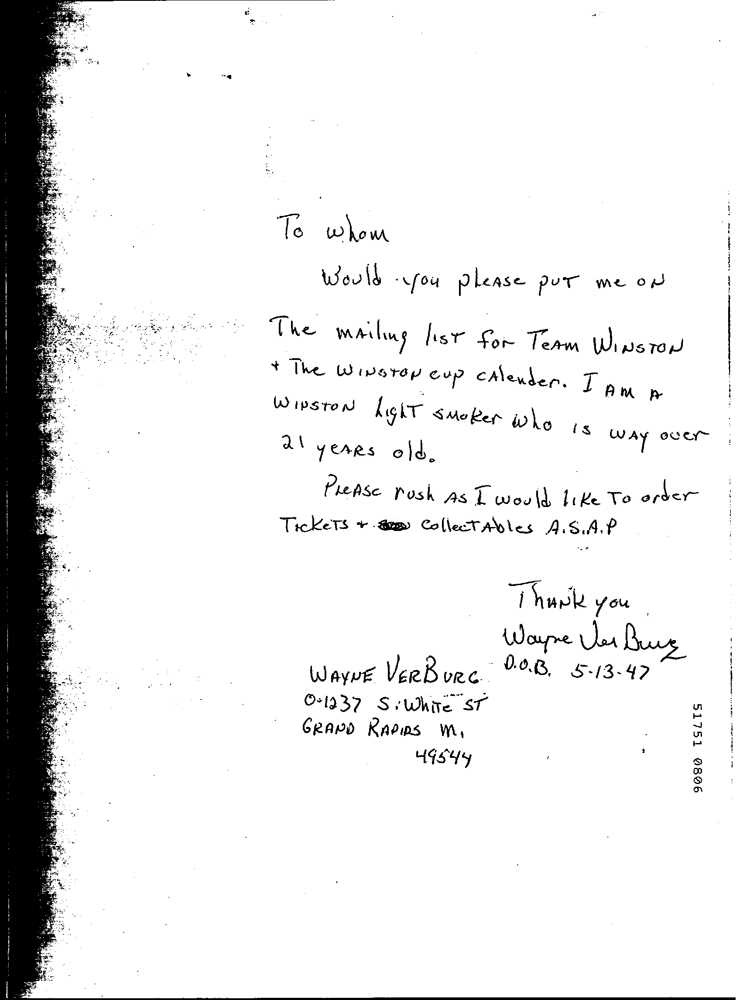 To whom
Would you please put me on
The mailing list for Team Winston
+ The Winston cup calender. I am a
Winston Light smoker who is way over
21 years old.
Please rush as I would like to order
Tickets + collectables A.S.A.P
Thank you
Wayne VerBurg
D.O.B. 5-13-47
Wayne VerBurg
0-1237 S. White ST
Grand Rapids Mi
49544
51751 0806